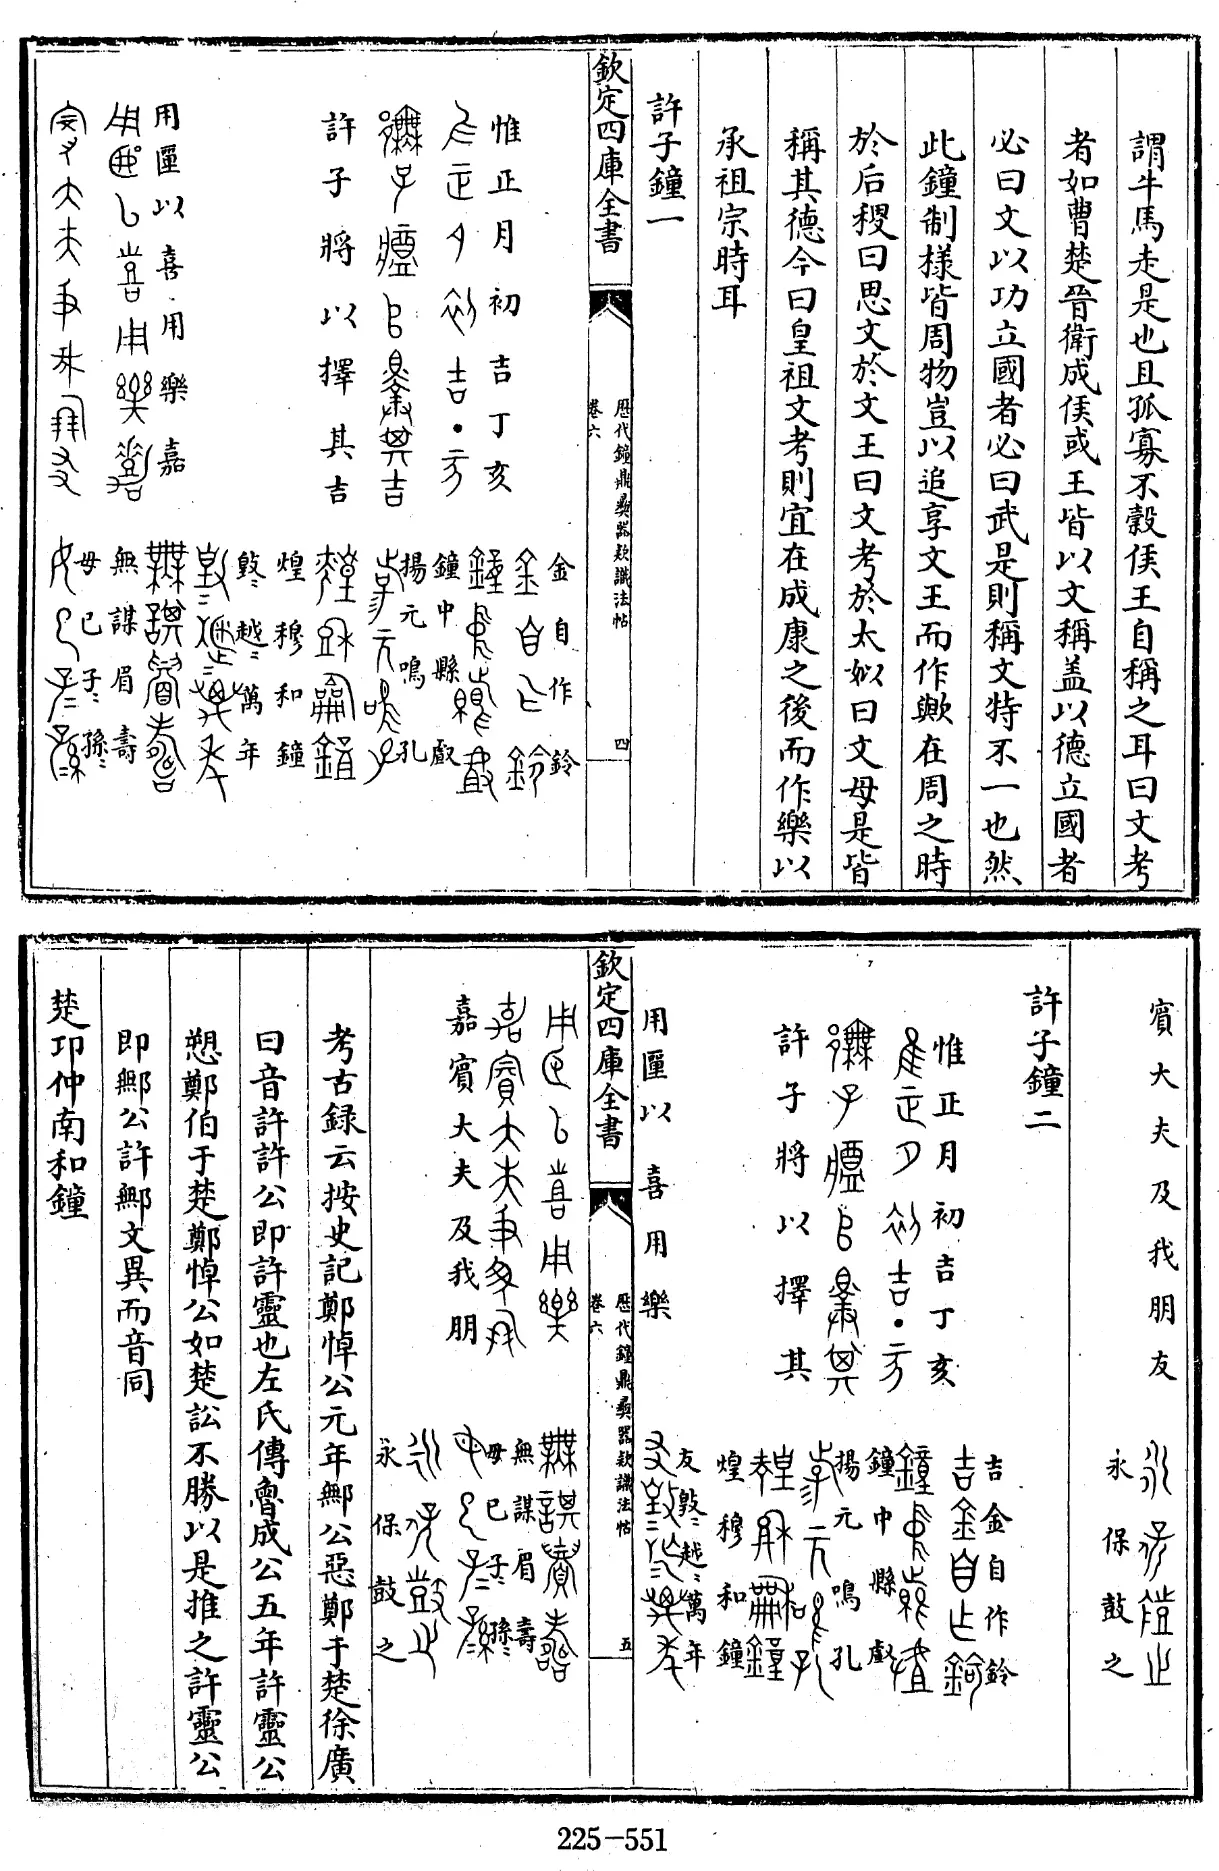 謂牛馬走是也且孤寡不穀侯王自稱之耳曰文考
者如曹楚晉衛成侯或王皆以文稱蓋以德立國者
必曰文以功立國者必曰武是則稱文特不一也然
此鐘制樣皆周物豈以追享文王而作歟在周之時
於后稷曰思文於文王曰文考於太姒曰文母是皆
稱其德今曰皇祖文考則宜在成康之後而作樂以
承祖宗時耳
許子鐘一
欽定四庫全書
歷代鐘鼎彝器款識法帖
卷六
四
惟正月初吉丁亥
許子將以擇其吉
金自作鈴
鐘中縣戱
揚元鳴孔
煌穆和鐘
數〻越〻萬年
無謀眉壽
毋已子〻孫〻
用匽以喜用樂嘉
賓大夫及我朋友
永保鼓之
許子鐘二
惟正月初吉丁亥
許子將以擇其
吉金自作鈴
鐘中縣戱
揚元鳴孔
煌穆和鐘
友數〻越〻萬年
用匽以喜用樂
欽定四庫全書
歷代鐘鼎彝器款識法帖
卷六
五
嘉賓大夫及我朋
無謀眉壽
毋已子〻孫〻
永保鼓之
考古録云按史記鄭悼公元年鄦公惡鄭于楚徐廣
曰音許許公即許靈也左氏傳魯成公五年許靈公
愬鄭伯于楚鄭悼公如楚訟不勝以是推之許靈公
即鄦公許鄦文異而音同
楚卭仲南和鐘
225-551